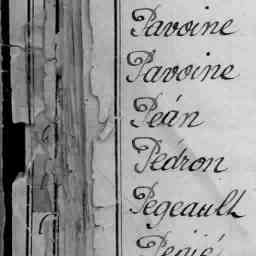 Pavoine
Pavoine
Péan
Pédron
Pegeault